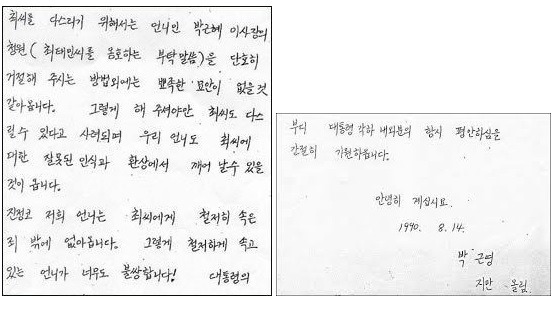 최씨를 다스리기 위해서는 언니인 박근혜 이사장의
청원(최태민씨를 옹호하는 부탁말씀)을 단호히
거절해 주시는 방법외에는 뾰족한 묘안이 없을것
같아옵니다. 그렇게 해 주셔야만 최씨도 다스
릴수 있다고 사려되며 우리 언니도 최씨에
대한 잘못된 인식과 환상에서 깨어 날수 있을
것이 옵니다.
진정코 저희 언니는 최씨에게 철저히 속은
죄 밖에 없아옵니다. 그렇게 철저하게 속고
있는 언니가 너무도 불쌍합니다! 대통령의
부디 대통령 각하 내외분의 항시 평안하심을
간절히 기원하옵니다.
안녕히 계십시요.
1990. 8. 14.
박 근영
지만 올림